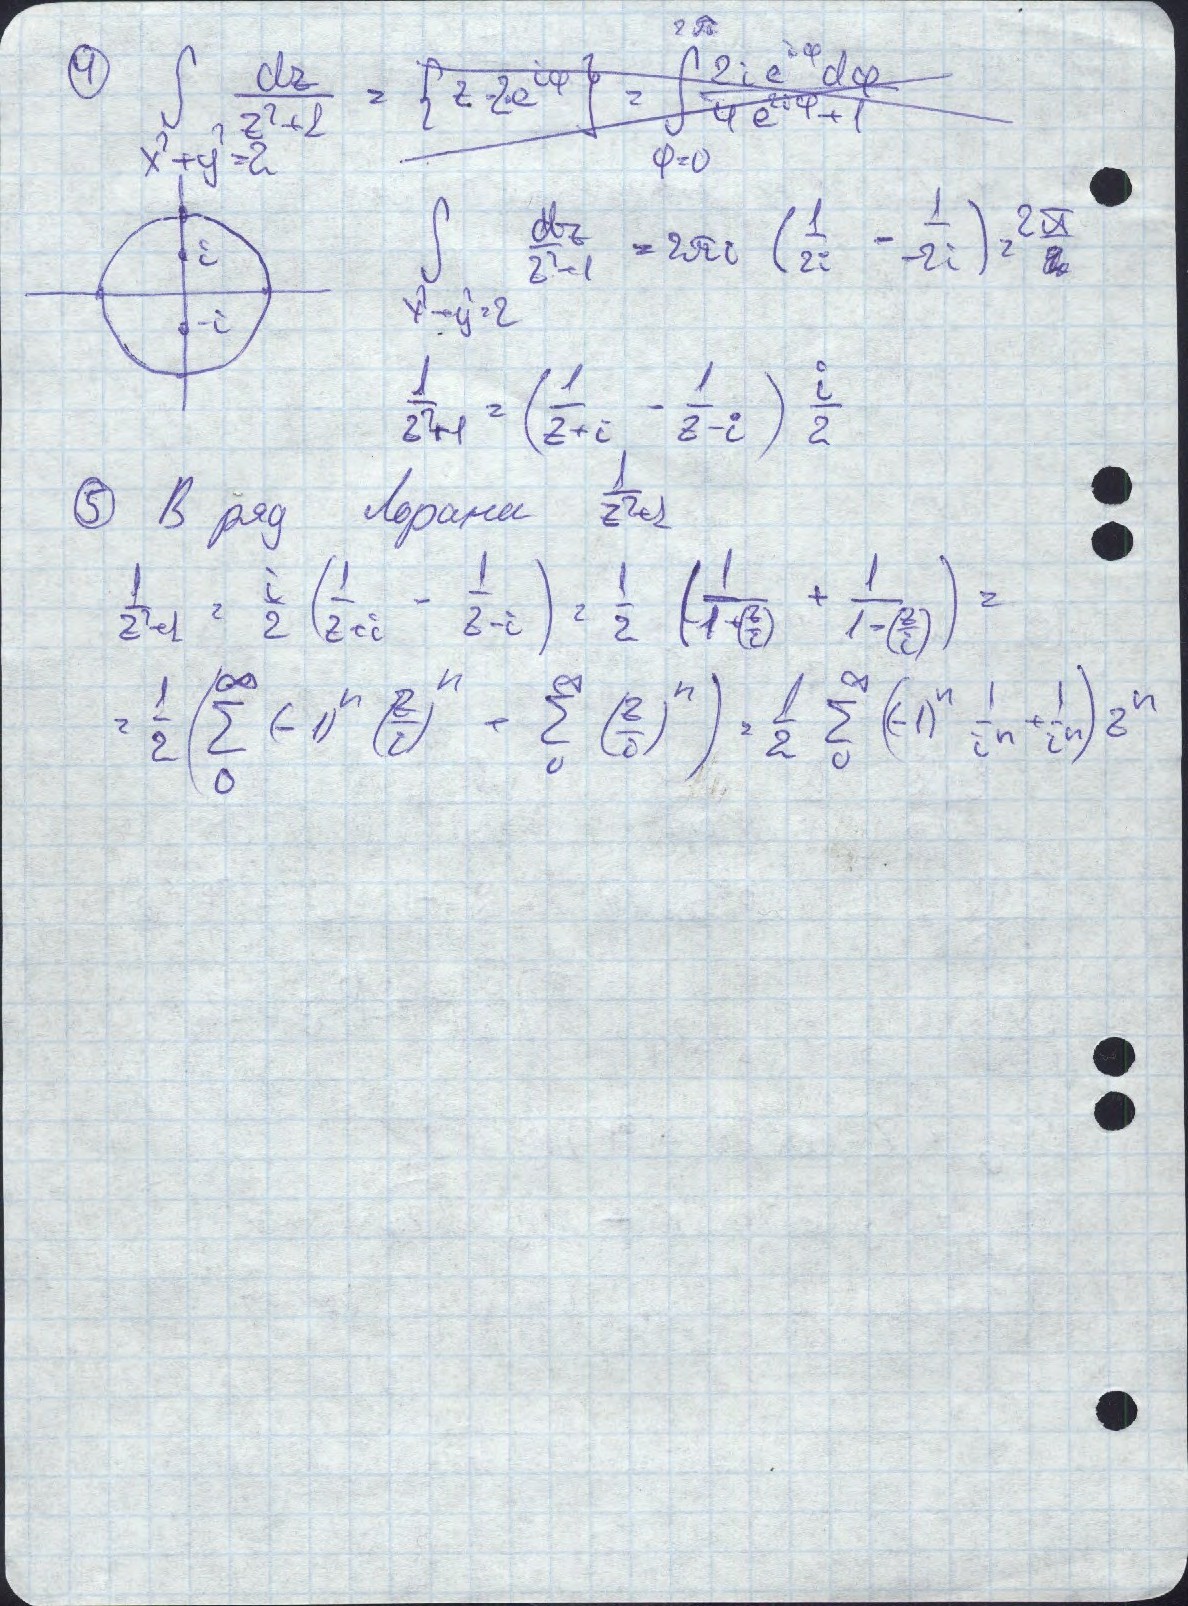 ④ ∫ dz/(z²+1) = {z = 2e^{iφ}} = ∫ 2ie^{iφ}dφ/(4e^{2iφ}+1)
x²+y²=2 φ=0 2π
i
-i
∫ dz/(z²+1) = 2πi (1/2i - 1/-2i) = 2π
x²+y²=2
1/(z²+1) = (1/(z+i) - 1/(z-i)) i/2
⑤ В ряд Лорана 1/(z²+1)
1/(z²+1) = i/2 (1/(z+i) - 1/(z-i)) = 1/2 (1/(1+(z/i)) + 1/(1-(z/i))) =
= 1/2 (∑₀^∞ (-1)ⁿ (z/i)ⁿ + ∑₀^∞ (z/i)ⁿ) = 1/2 ∑₀^∞ ((-1)ⁿ 1/iⁿ + 1/iⁿ) zⁿ